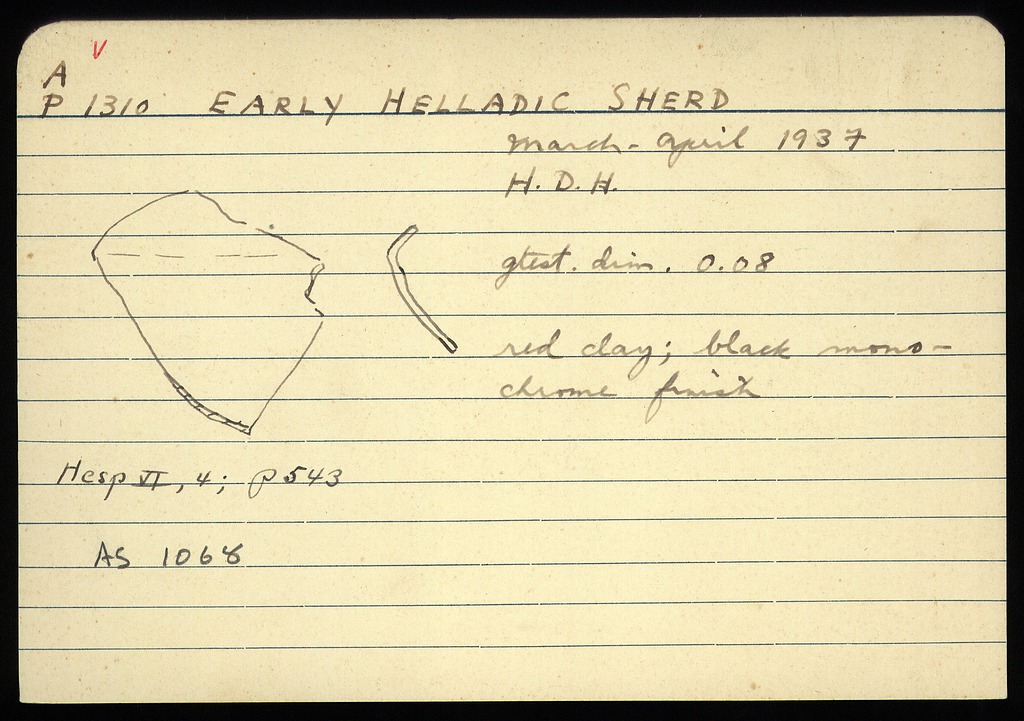 V
A
P 1310 EARLY HELLADIC SHERD
March - April 1937
H. D. H.
gtest. dim. 0.08
red clay; black mono-
chrome finish
Hesp VI, 4; p 543
AS 1068